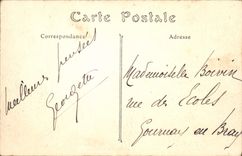 Carte Postale
Correspondance
Adresse
meilleures pensées
Georgette
Mademoiselle Boivin
rue des Ecoles
Gournay en Bray